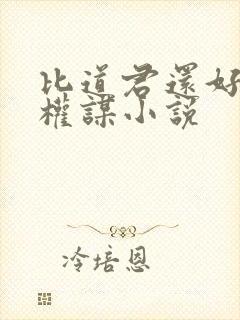 比道君還好
權謀小説
冷培恩